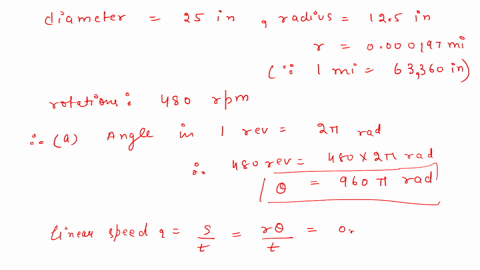 diameter = 25 in , radius = 12.5 in
r = 0.000197 mi
(∵ 1 mi = 63,360 in)
rotations: 480 rpm
∴ (a) Angle in 1 rev = 2π rad
∴ 480 rev = 480 × 2π rad
θ = 960 π rad
linear speed, = s/t = rθ/t = 0.